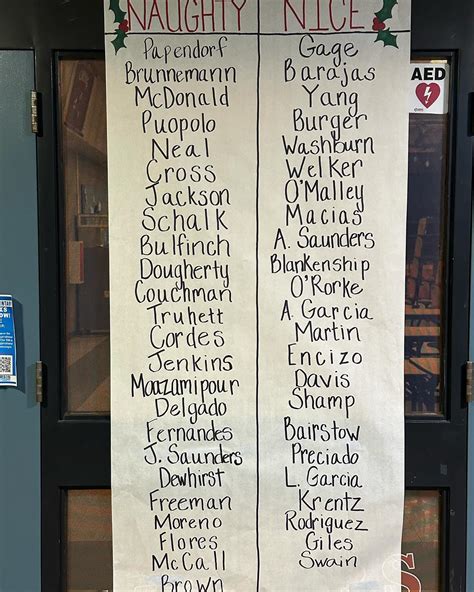 NAUGHTY
Papendorf
Brunnemann
McDonald
Puopolo
Neal
Cross
Jackson
Schalk
Bulfinch
Dougherty
Couchman
Truhett
Cordes
Jenkins
Moazamipour
Delgado
Fernandes
J. Saunders
Dewhirst
Freeman
Moreno
Flores
McCall
Brown
NICE
Gage
Barajas
Yang
Burger
Washburn
Welker
O'Malley
Macias
A. Saunders
Blankenship
O'Rorke
A. Garcia
Martin
Encizo
Davis
Shamp
Bairstow
Preciado
L. Garcia
Krentz
Rodriguez
Giles
Swain
AED